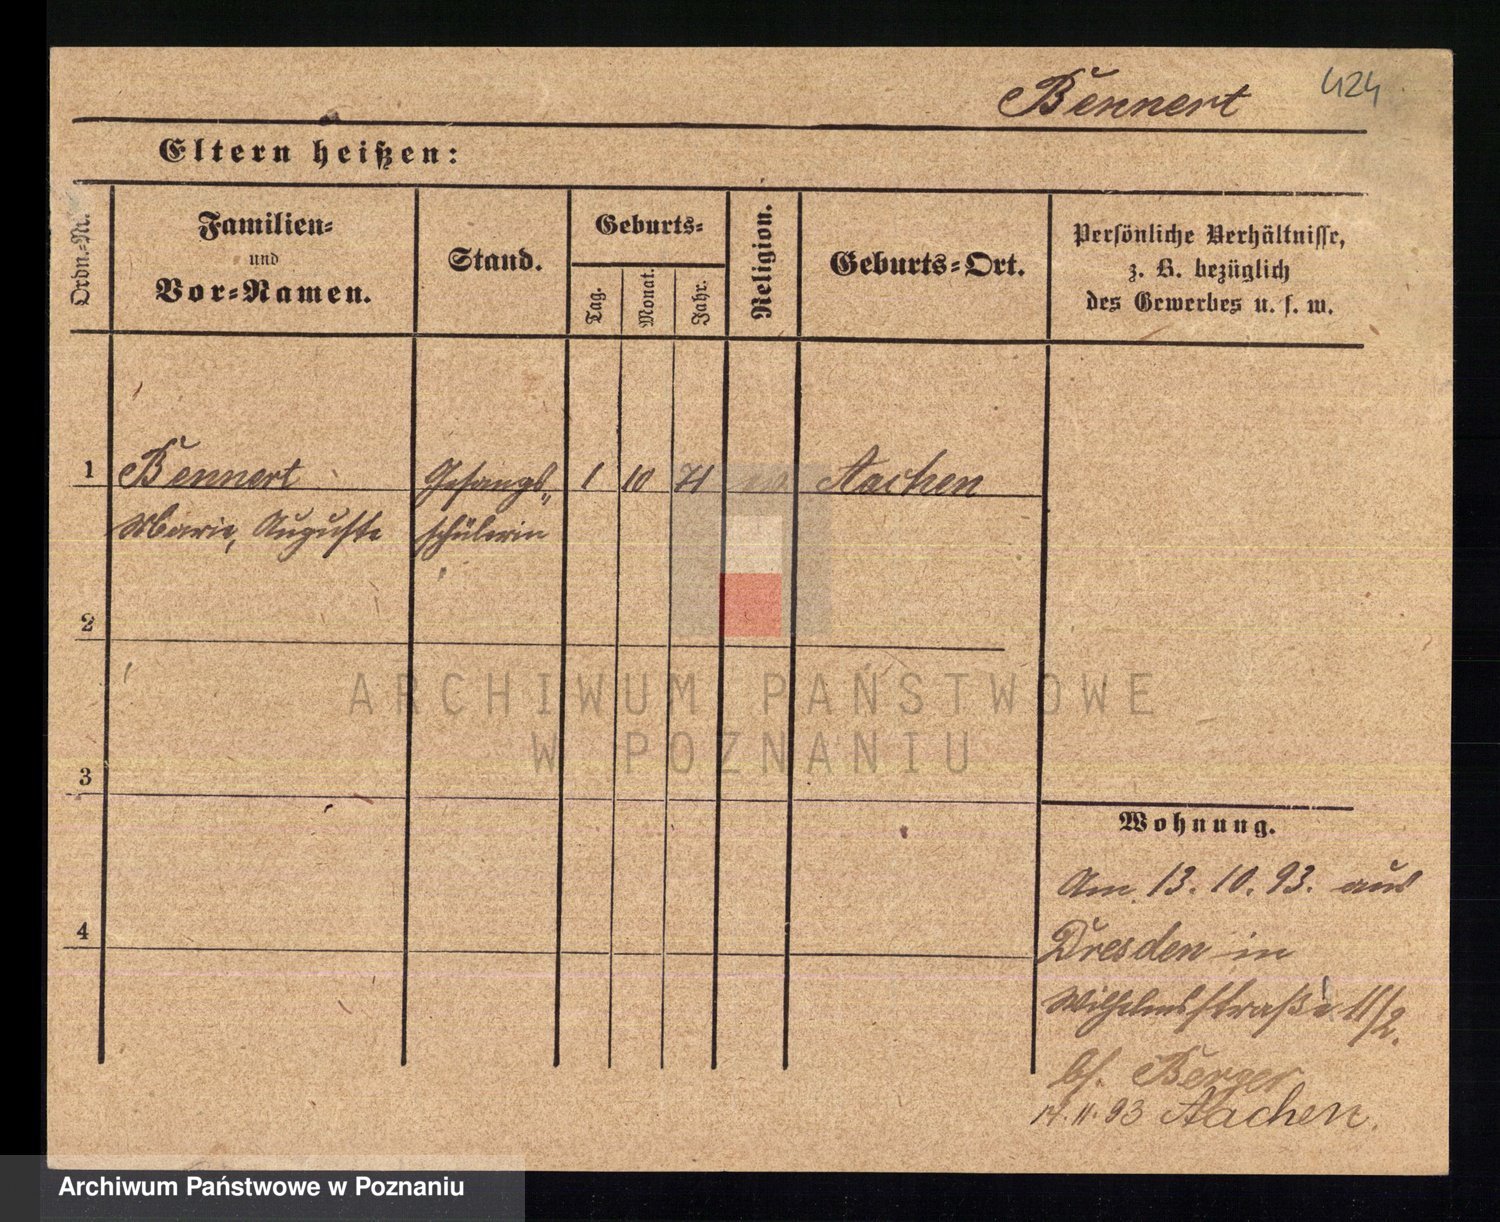 Bennert 424
Eltern heißen:
Ordn.-Nr.
Familien-
und
Vor-Namen.
Stand.
Geburts-
Tag.
Monat.
Jahr.
Religion.
Geburts-Ort.
Persönliche Verhältnisse,
z. B. bezüglich
des Gewerbes u. s. w.
1 Bennert Gesangs- 1 10 71 Aachen
Marie, Auguste schülerin
2
3
4
Wohnung.
Am 13. 10. 93. aus
Dresden in
Wilhelmsstraße 11/2.
bf. Berger
14. 11. 93 Aachen.
ARCHIWUM PAŃSTWOWE
W POZNANIU
Archiwum Państwowe w Poznaniu